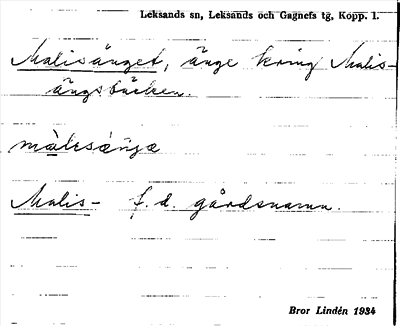 Leksands sn, Leksands och Gagnefs tg, Kopp. l.
Malisänget, änge kring Malis-
ängsbäcken.
màlesäŋʒæ
Malis- f.d. gårdsnamn.
Bror Lindén 1934